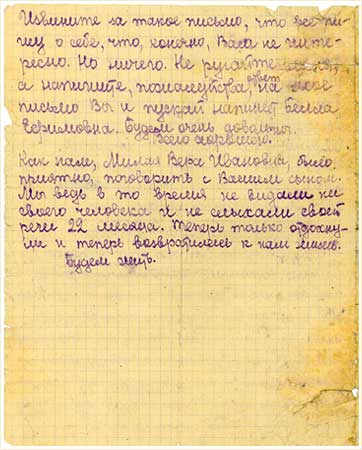 Извините за такое письмо, что все пи-
шу о себе, что, конечно, Вам не инте-
ресно. Но ничего. Не ругайте
а напишите, пожалуйста, на мое
ответ
письмо Вы и пускай напишет Белла
Ефимовна. Будем очень довольны.
Всего хорошего.
Как нам, Милая Вера Ивановна, было
приятно, поговорить с Вашим сыном.
Мы ведь в то время не видали ни
своего человека и не слыхали своей
речи 22 месяца. Теперь только отдохну-
ли и теперь возвратилась к нам жизнь.
Будем жить.